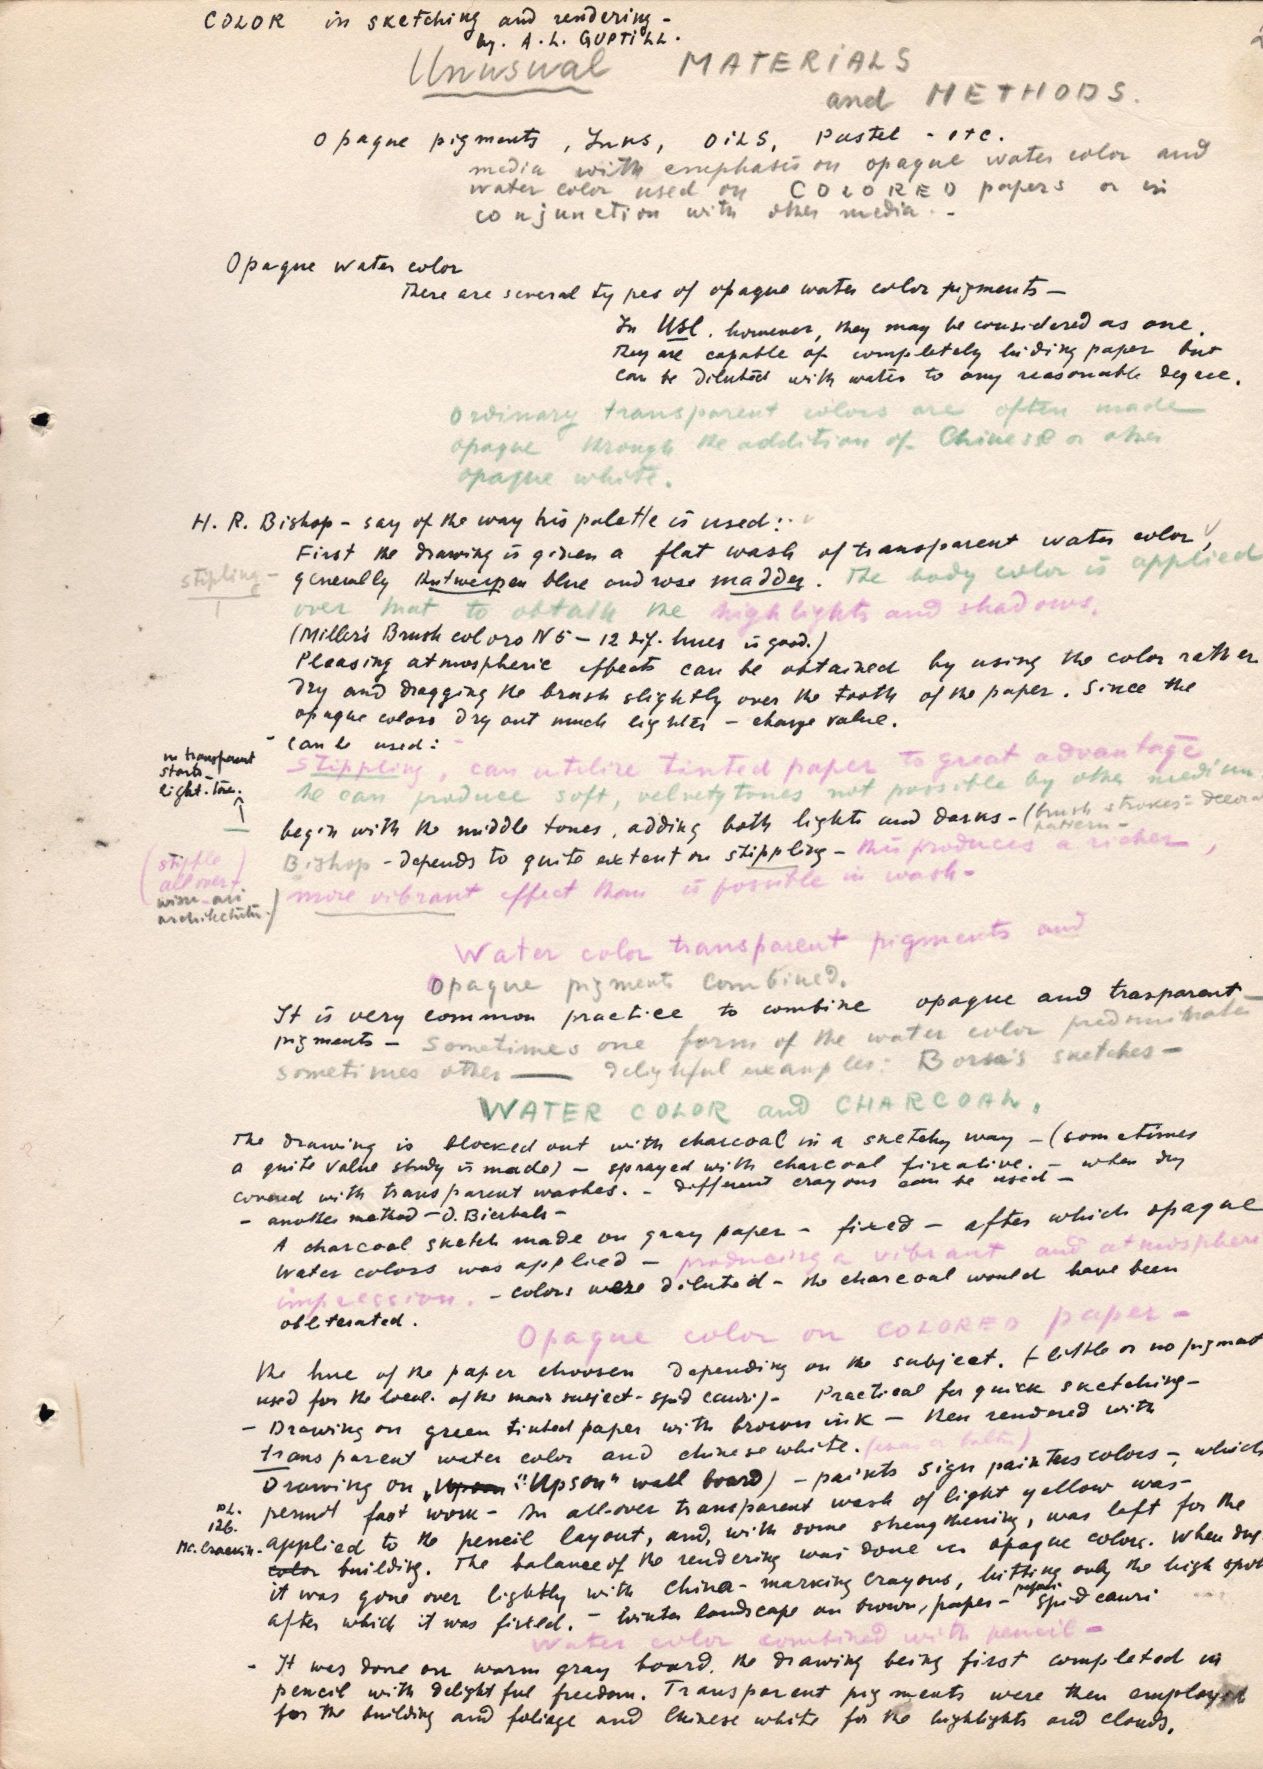 COLOR in sketching and rendering -
by. A. L. GUPTILL.
Unusual MATERIALS
and METHODS.
Opaque pigments, Inks, OILS, Pastel - etc.
media with emphasis on opaque water color and
water color used on COLORED papers or in
conjunction with other media. -
Opaque water color
There are several types of opaque water color pigments -
In USE. however, they may be considered as one.
They are capable of completely hiding paper but
can be diluted with water to any reasonable degree.
Ordinary transparent colors are often made
opaque through the addition of Chinese or other
opaque white.
H. R. Bishop - say of the way his palette is used:
First the drawing is given a flat wash of transparent water color,
stipling -
generally Antwerpen blue and rose madder. The body color is applied
over that to obtain the highlights and shadows.
(Miller's Brush colors N5 - 12 dif. hues is good.)
Pleasing atmospheric effects can be obtained by using the color rather
dry and dragging the brush slightly over the tooth of the paper. Since the
opaque colors dry out much lighter - change value.
- can be used: -
in transparent
starts
light. tone.
Stippling, can utilize tinted paper to great advantage
he can produce soft, velvety tones not possible by other medium.
begin with the middle tones, adding both lights and darks - (brush strokes =
pattern -
(stipple
all over +

Bishop - depends to quite extent on stippling - this produces a richer,
more vibrant effect than is possible in wash -
Water color transparent pigments and
Opaque pigments combined.
It is very common practice to combine opaque and trasparent -
pigments - sometimes one form of the water color predominates
sometimes other — delightful examples: sketches -
WATER COLOR and CHARCOAL.
The drawing is blocked out with charcoal in a sketchy way - (sometimes
a quite value study is made) - sprayed with charcoal fixative. - when dry
covered with transparent washes. - different crayons can be used -
- another method -
A charcoal sketch made on gray paper - fixed - after which opaque
water colors was applied - producing a vibrant and atmosphere
impression. - colors were diluted - the charcoal would have been
obliterated.
Opaque color on COLORED paper -
the hue of the paper choosen depending on the subject. (- little or no pigment
used for the local. of the main subject - Practical for quick sketching -
- Drawing on green tinted paper with brown ink - then rendered with
transparent water color and chinese white.
Drawing on "Upson" wall board) - paints sign painters colors -, which
PL.
126.
permit fast work - An all-over transparent wash of light yellow was -
applied to the pencil layout, and, with some strengthening, was left for the
color building. The balance of the rendering was done in opaque colors. When dry
it was gone over lightly with china - marking crayons, hitting only the high spots
after which it was fixed. - Winter landscape on brown, paper -
Water color combined with pencil -
- It was done on warm gray board, the drawing being first completed in
pencil with delightful freedom. Transparent pigments were then employed
for the building and foliage and Chinese white for the highlights and clouds.